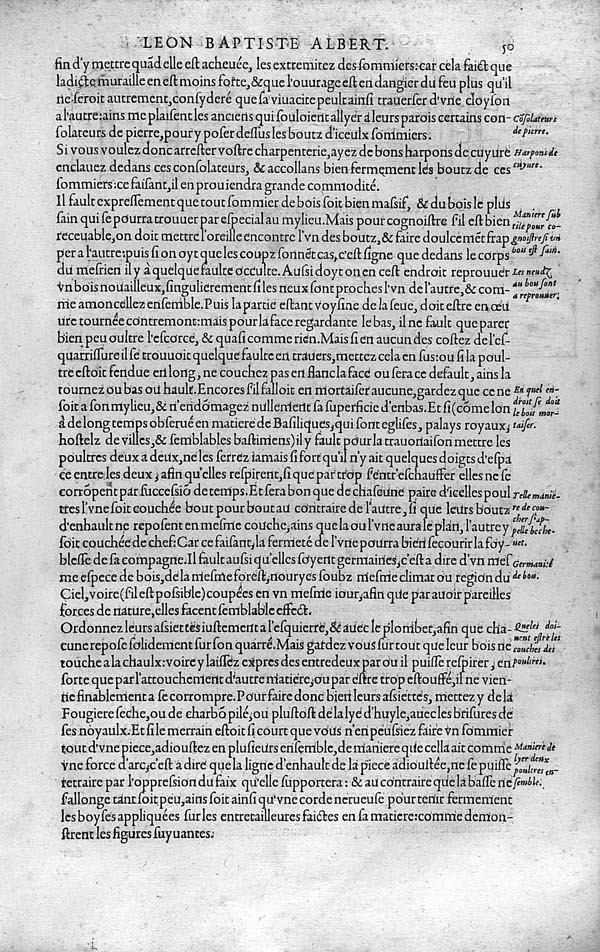 LEON BAPTISTE ALBERT. 50
fin d'y mettre quãd elle est acheuée, les extremitez des sommiers: car cela faict que
ladicte muraille en est moins forte, & que l'ouurage est en dangier du feu plus qu'il
ne seroit autrement, consyderé que sa viuacite peult ainsi trauerser d'vne cloyson
a l'autre: ains me plaisent les anciens qui souloient allyer a leurs parois certains con-
solateurs de pierre, pour y poser dessus les boutz d'iceulx sommiers.
Cõsolateurs
de pierre.
Si vous voulez donc arrester vostre charpenterie, ayez de bons harpons de cuyure
enclauez dedans ces consolateurs, & accollans bien fermement les boutz de ces
sommiers: ce faisant, il en prouiendra grande commodité.
Harpons de
cuyure.
Il fault expressement que tout sommier de bois soit bien massif, & du bois le plus
sain qui se pourra trouuer par especial au mylieu. Mais pour cognoistre s'il est bien
receuable, on doit mettre l'oreille encontre l'vn des boutz, & faire doulcemẽt frap
per a l'autre: puis si on oyt que les coupz sonnẽt cas, c'est signe que dedans le corps
du mesrien il y à quelque faulte occulte. Aussi doyt on en cest endroit reprouuer
vn bois nouailleux, singulierement si les neux sont proches l'vn de l'autre, & com-
me amoncellez ensemble. Puis la partie estant voysine de la seue, doit estre en œu
ure tournée contremont: mais pour la face regardante le bas, il ne fault que parer
bien peu oultre l'escorce, & quasi comme rien. Mais si en aucun des costez de l'es-
quarrissure il se trouuoit quelque faulte en trauers, mettez cela en sus: ou si la poul-
tre estoit fendue en long, ne couchez pas en flanc la face ou sera ce default, ains la
tournez ou bas ou hault. Encores s'il falloit en mortaiser aucune, gardez que ce ne
soit a son mylieu, & n'endõmagez nullement sa superficie d'enbas. Et si (cõme lon
à de long temps obserué en matiere de Basiliques, qui sont eglises, palays royaux,
hostelz de villes, & semblables bastimens) il y fault pour la trauonaison mettre les
poultres deux a deux, ne les serrez iamais si fort qu'il n'y ait quelques doigts d'espa
ce entre les deux, afin qu'elles respirent, si que par trop s'entr'eschauffer elles ne se
corrõpent par successiõ de temps. Et sera bon que de chascune paire d'icelles poul
tres l'vne soit couchée bout pour bout au contraire de l'autre, si que leurs boutz
d'enhault ne reposent en mesme couche, ains que la ou l'vne aura le plan, l'autre y
soit couchée de chef: Car ce faisant, la fermeté de l'vne pourra bien secourir la foy-
blesse de sa compagne. Il fault aussi qu'elles soyent germaines, c'est a dire d'vn mes
me espece de bois, de la mesme forest, nouryes soubz mesme climat ou region du
Ciel, voire (s'il est possible) coupées en vn mesme iour, afin que par auoir pareilles
forces de nature, elles facent semblable effect.
Maniere sub
tile pour co-
gnoistre si vn
bois est sain.
Les neudz
au bou sont
a reprouuer.
En quel en-
droit se doit
le bois mor-
taiser.
Telle manie-
re de cou-
cher s'ap-
pelle beche-
uet.
Germanité
de bou.
Ordonnez leurs assiettes iustement a l'esquierre, & auec le plombet, afin que cha-
cune repose solidement sur son quarré. Mais gardez vous sur tout que leur bois ne
touche a la chaulx: voire y laissez expres des entredeux par ou il puisse respirer, en
sorte que par l'attouchement d'autre matiere, ou par estre trop estouffé, il ne vien-
ne finablement a se corrompre. Pour faire donc bien leurs assiettes, mettez y de la
Fougiere seche, ou de charbõ pilé, ou plustost de la lye d'huyle, auec les brisures de
ses noyaulx. Et si le merrain estoit si court que vous n'en peussiez faire vn sommier
tout d'vne piece, adioustez en plusieurs ensemble, de maniere que cella ait comme
vne force d'arc, c'est a dire que la ligne d'enhault de la piece adioustée, ne se puisse
retraire par l'oppression du faix qu'elle supportera: & au contraire que la basse ne
s'allonge tãt soit peu, ains soit ainsi qu'vne corde nerueuse pour tenir fermement
les boyses appliquées sur les entretailleures faictes en sa matiere: comme demon-
strent les figures suyuantes.
Queles doi-
uent estre les
couches des
poultres.
Maniere de
lyer deux
poultres en-
semble.